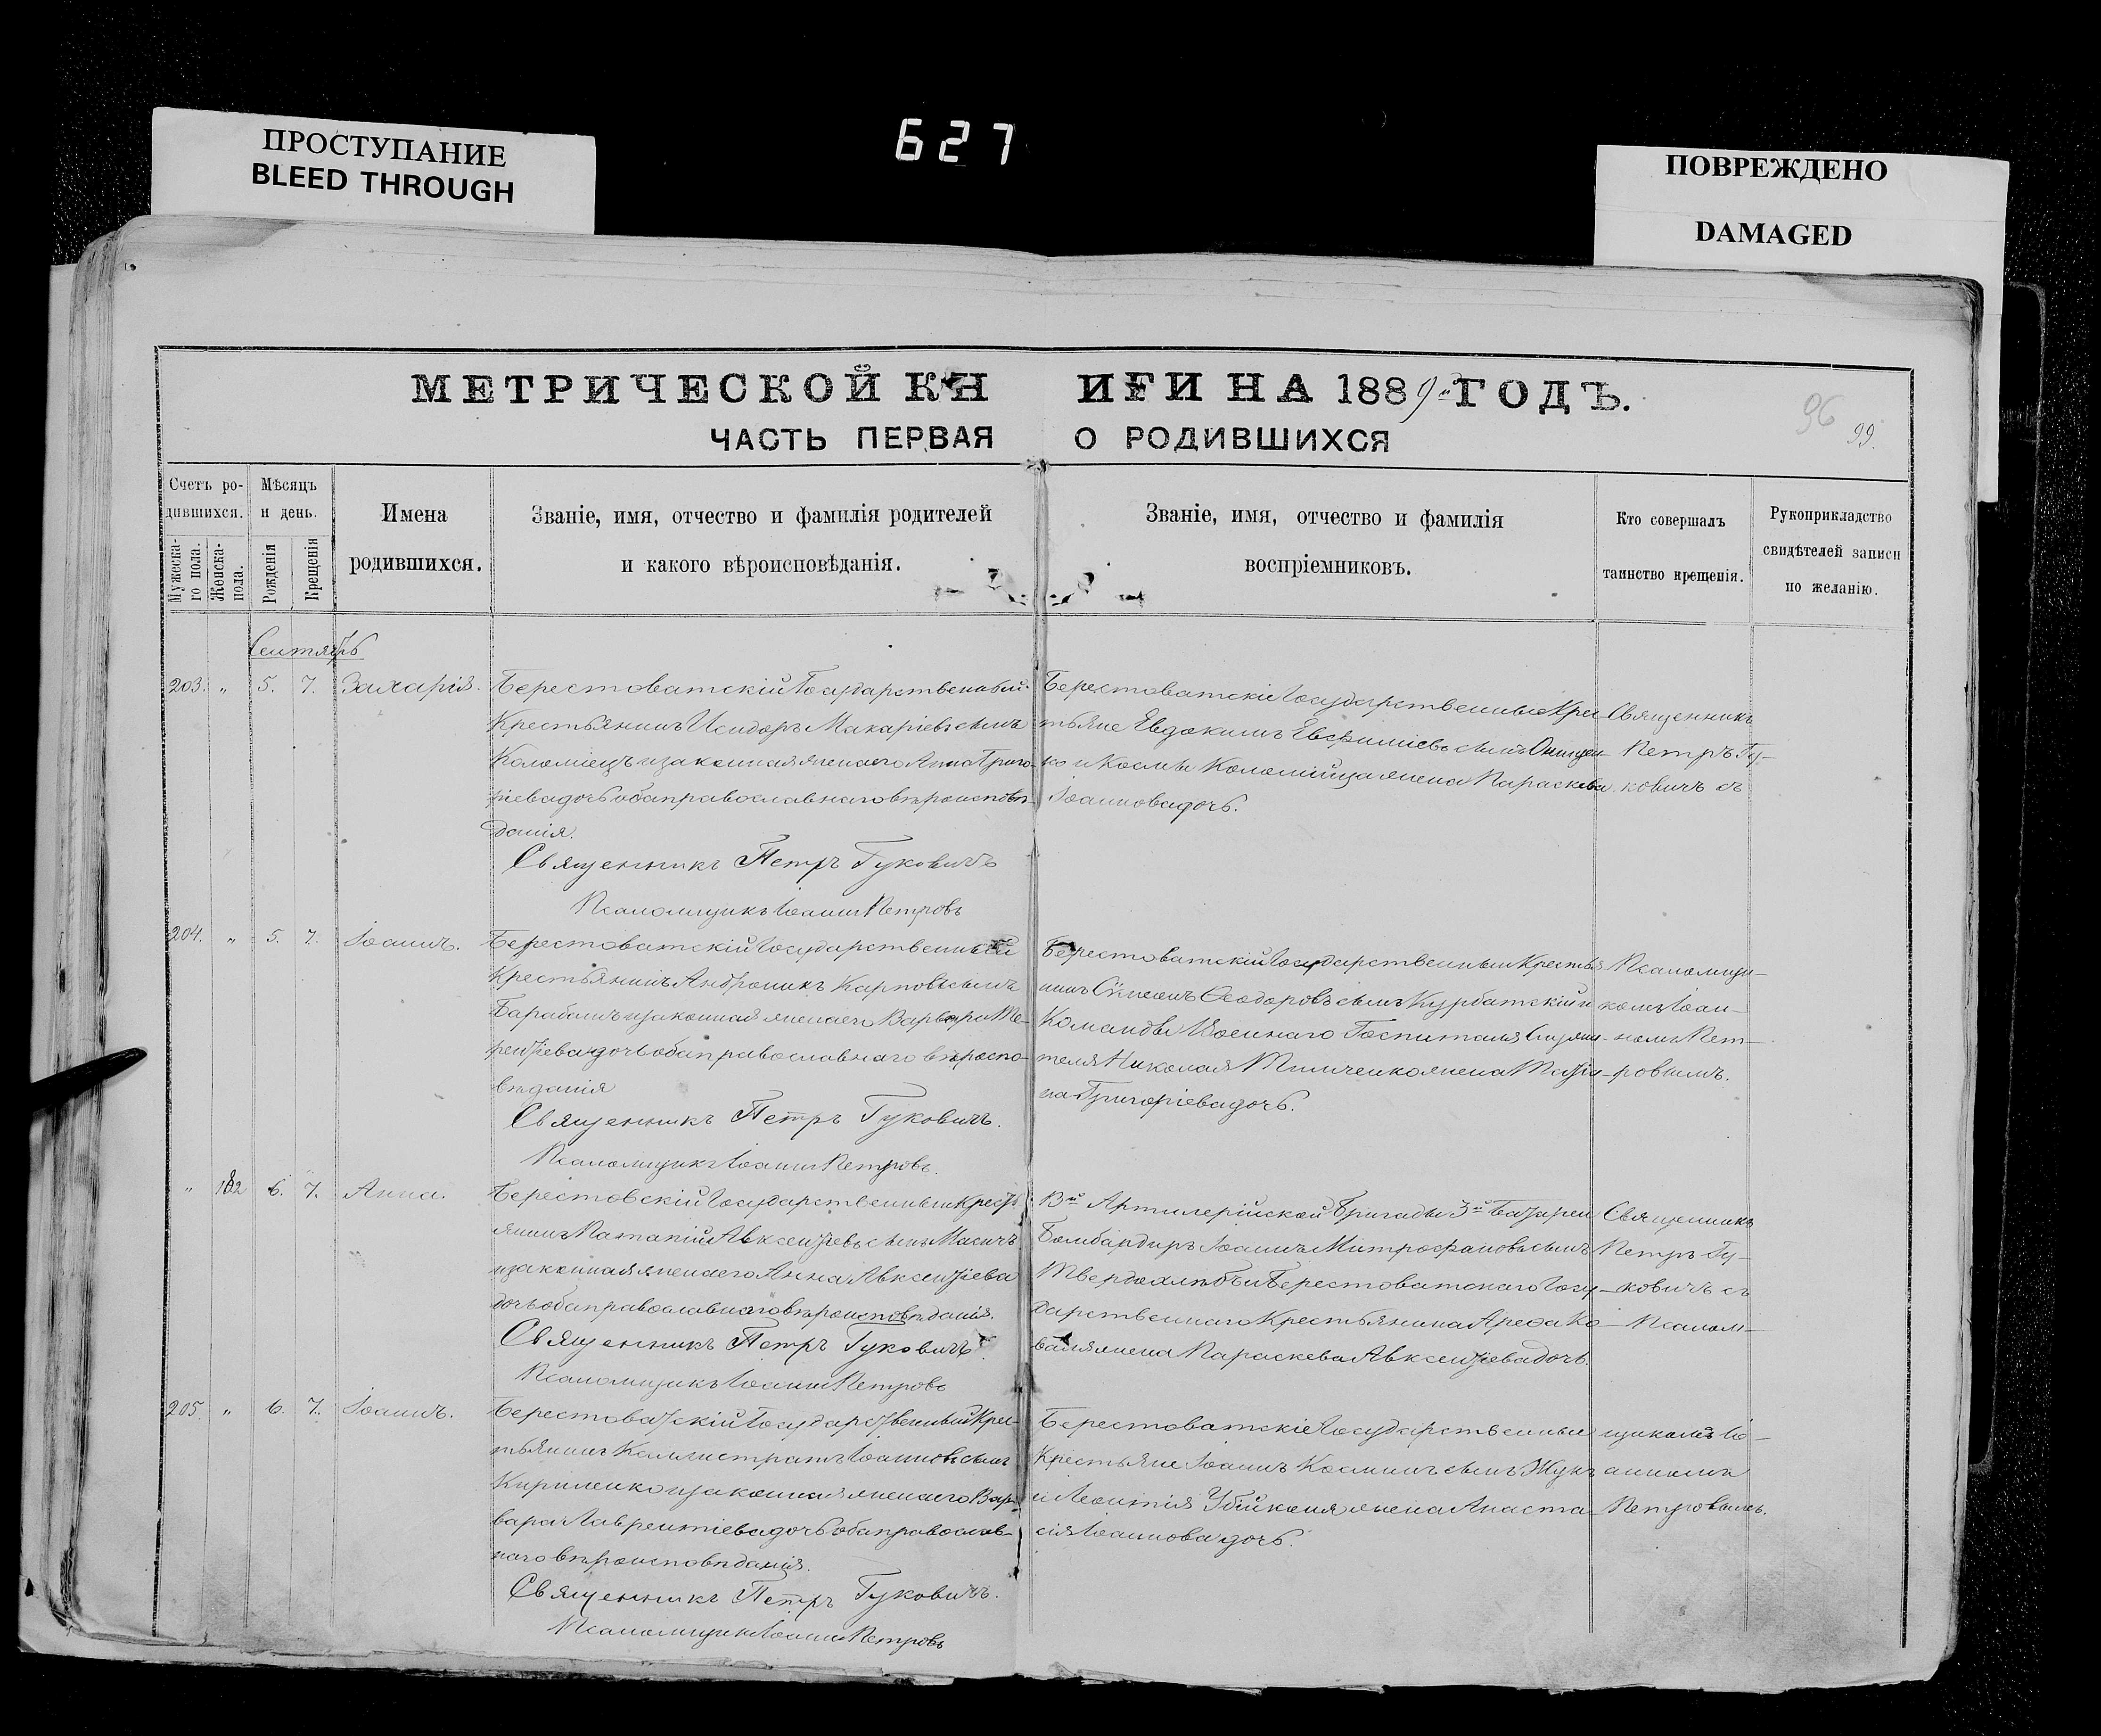 ПРОСТУПАНИЕ
BLEED THROUGH
627
ПОВРЕЖДЕНО
DAMAGED
МЕТРИЧЕСКОЙ КН ИГИ НА 1889й ГОДЪ.
ЧАСТЬ ПЕРВАЯ О РОДИВШИХСЯ
96
99.
Счетъ ро-
дившихся.
Мужеска-
го пола.
Женска-
пола.
Мѣсяцъ
и день.
Рожденія
Крещенія
Имена
родившихся.
Званіе, имя, отчество и фамилія родителей
и какого вѣроисповѣданія.
Званіе, имя, отчество и фамилія
воспріемниковъ.
Кто совершалъ
таинство крещенія.
Рукоприкладство
свидѣтелей записи
по желанію.
Сентябрь
203. " 5. 7. Захарія.
Берестоватскій Государственный
Крестьянинъ Исидоръ Макаріевъ сынъ
Коломіецъ и законная жена его Анна Григо-
ріева дочь оба православнаго вѣроисповѣ-
данія.
Священникъ Петръ Гуковичъ
Псаломщикъ Іоаннъ Петровъ
Берестоватскіе Государственные Крес-
тьяне Евдокимъ Евфиміевъ сынъ Онищен-
ко и Косьмы Коломійца жена Параскева
Іоаннова дочь.
Священникъ
Петръ Гу-
ковичъ съ
204. " 5. 7. Іоаннъ.
Берестоватскій Государственный
Крестьянинъ Андроникъ Карповъ сынъ
Барабашъ и законная жена его Варвара Те-
рентіева дочь оба православнаго вѣроиспо-
вѣданія
Священникъ Петръ Гуковичъ.
Псаломщикъ Іоаннъ Петровъ.
Берестоватскій Государственный Крестья-
нинъ Симеонъ Ѳеодоровъ сынъ Курбатскій и
Команды Военнаго Госпиталя Служи-
теля Николая Тимченко жена Татья-
на Григоріева дочь.
Псаломщи-
комъ Іоан-
номъ Пет-
ровымъ.
" 182 6. 7. Анна.
Берестовскій Государственный Кресть-
янинъ Патапій Авксентіевъ сынъ Масичъ
и законная жена его Анна Авксентіева
дочь оба православнаго вѣроисповѣданія.
Священникъ Петръ Гуковичъ.
Псаломщикъ Іоаннъ Петровъ
Артилерійской Бригады 3й Батареи
Бомбардиръ Іоаннъ Митрофановъ сынъ
Твердохлѣбъ и Берестоватскаго Госу-
дарственнаго Крестьянина Арефа Ко-
валя жена Параскева Авксентіева дочь.
Священникъ
Петръ Гу-
ковичъ съ
Псалом-
205 " 6. 7. Іоаннъ.
Берестоватскій Государственный Крес-
тьянинъ Каллистратъ Іоанновъ сынъ
Кириленко и законная жена его Вар-
вара Лаврентіева дочь оба православ-
наго вѣроисповѣданія.
Священникъ Петръ Гуковичъ.
Псаломщикъ Іоаннъ Петровъ
Берестоватскіе Государственные
Крестьяне Іоаннъ Косминъ сынъ Жукъ
и Леонтія Убійконя жена Анаста-
сія Іоаннова дочь.
щикомъ Іо-
анномъ
Петровымъ.